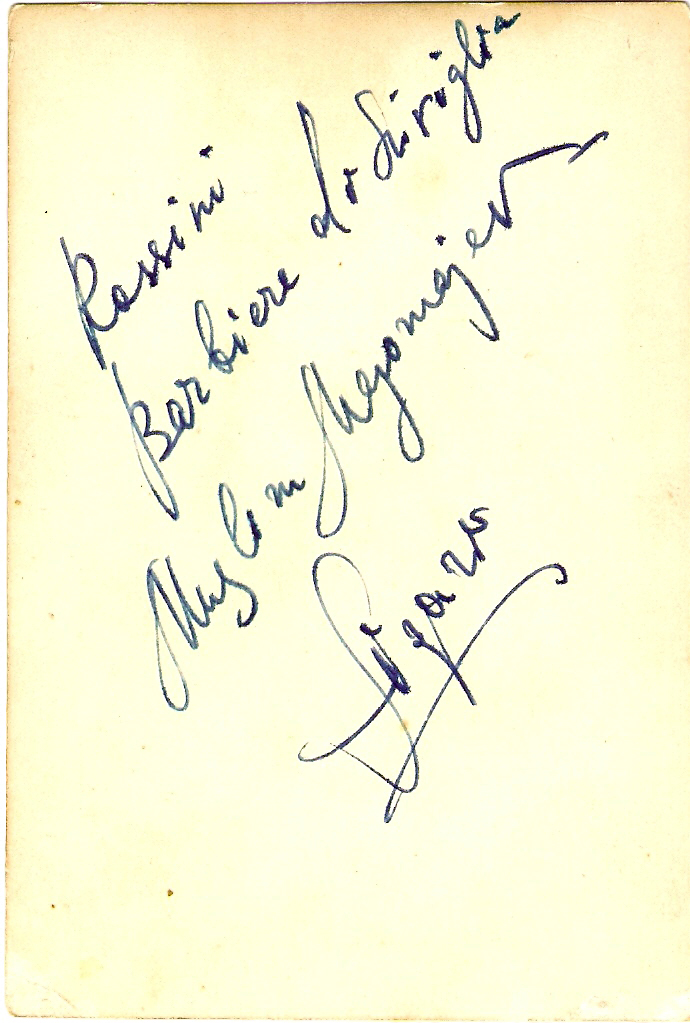 Rossini
Barbiere do Siviglia
Muslim Magomajev
Figaro